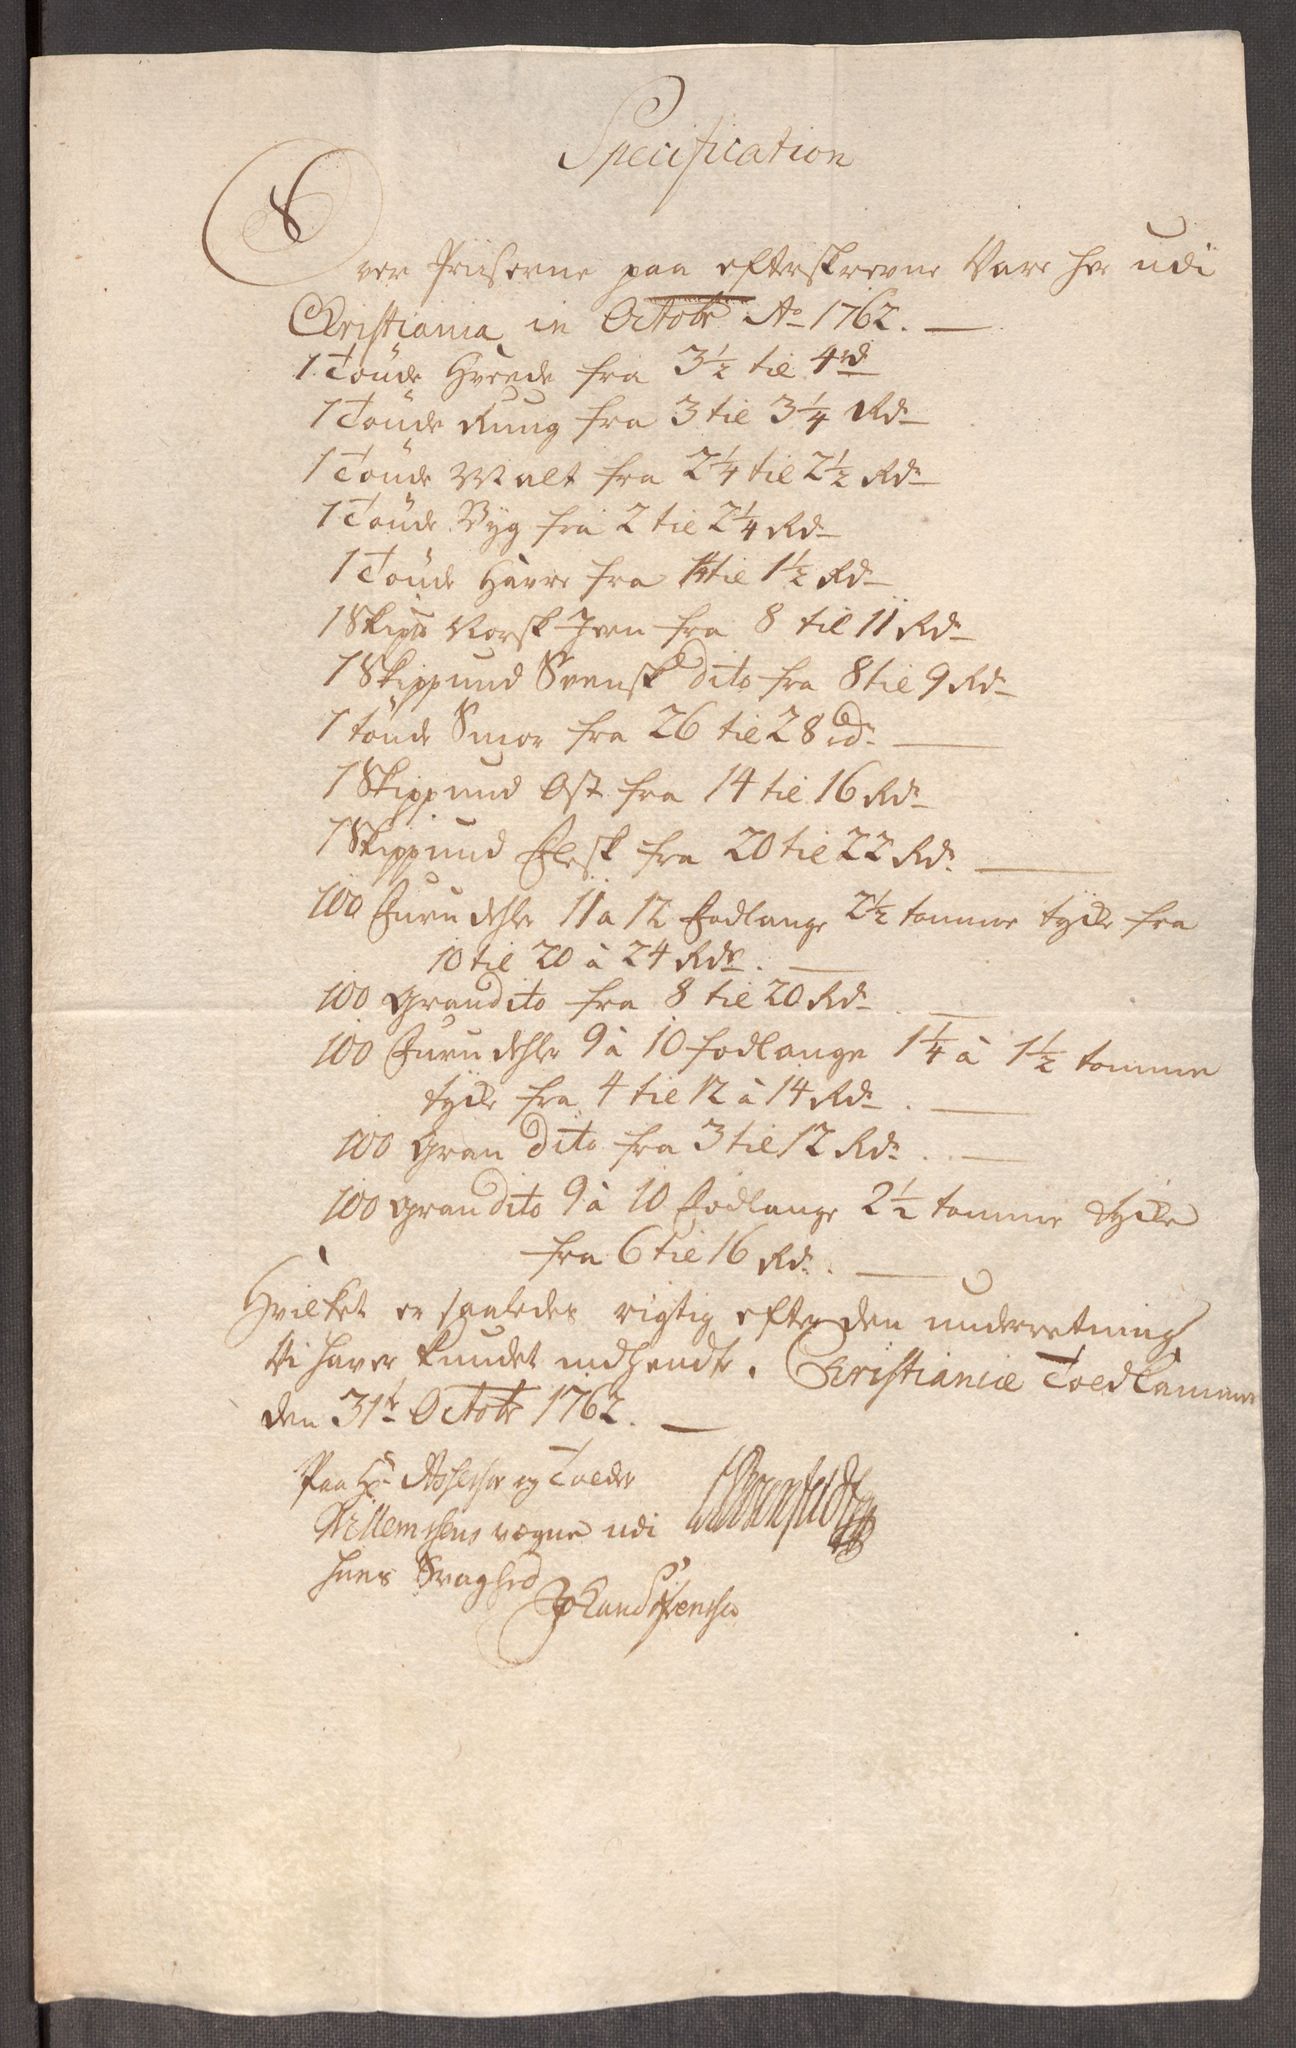 Specification
Over Priiserne paa efterskrevne Vare her udi
Christiania in Octobr Ao 1762.
1 Tönde Hvede fra 3½ til 4 rd
1 Tönde Rung fra 3 til 3¼ Rdr
1 Tönde Malt fra 2¼ til 2½ Rdr
1 Tönde Byg fra 2 til 2¼ Rdr
1 Tönde Havre fra 1¼ til 1½ Rdr
1 Skipd Norsk Jern fra 8 til 11 Rdr
1 Skippund Svensk dito fra 8 til 9 Rdr
1 tönde Smör fra 26 til 28 rdr.
1 Skippund Ost fra 14 til 16 Rdr
1 Skippund Flesk fra 20 til 22 Rdr.
100 Furu dehler 11 a 12 Fodlange 2½ tomme tycke fra
10 til 20 à 24 Rdr.
100 Gran dito fra 8 til 20 Rdr.
100 Furu dehler 9 à 10 fodlange 1¼ à 1½ tomme
tycke fra 4 til 12 à 14 Rdr.
100 Gran dito fra 3 til 12 Rdr.
100 Gran dito 9 à 10 Fodlange 2½ tomme tycke
fra 6 til 16 Rdr.
Hvilket er saaledes rigtig efter den underretning
Vi haver kundet indhendte. Christianiæ Toldkammer
den 31te Octobr 1762.
Paa Hr Assessor og Tolder
Willemsens vegne udi
hans Svaghed